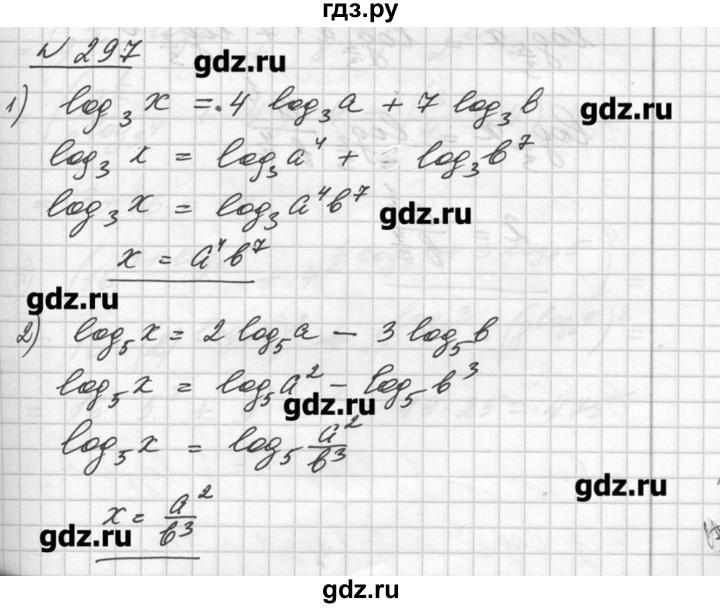 гдз.ру
№ 297
gdz.ru
1) log₃ x = 4 log₃ a + 7 log₃ b
gdz.ru
log₃ x = log₃ a⁴ + log₃ b⁷
log₃ x = log₃ a⁴b⁷
gdz.ru
x = a⁴b⁷
gdz.ru
2) log₅ x = 2 log₅ a − 3 log₅ b
log₅ x = log₅ a² − log₅ b³
gdz.ru
log₅ x = log₅ a²/b³
gdz.ru
x = a²/b³
gdz.ru
gdz.ru